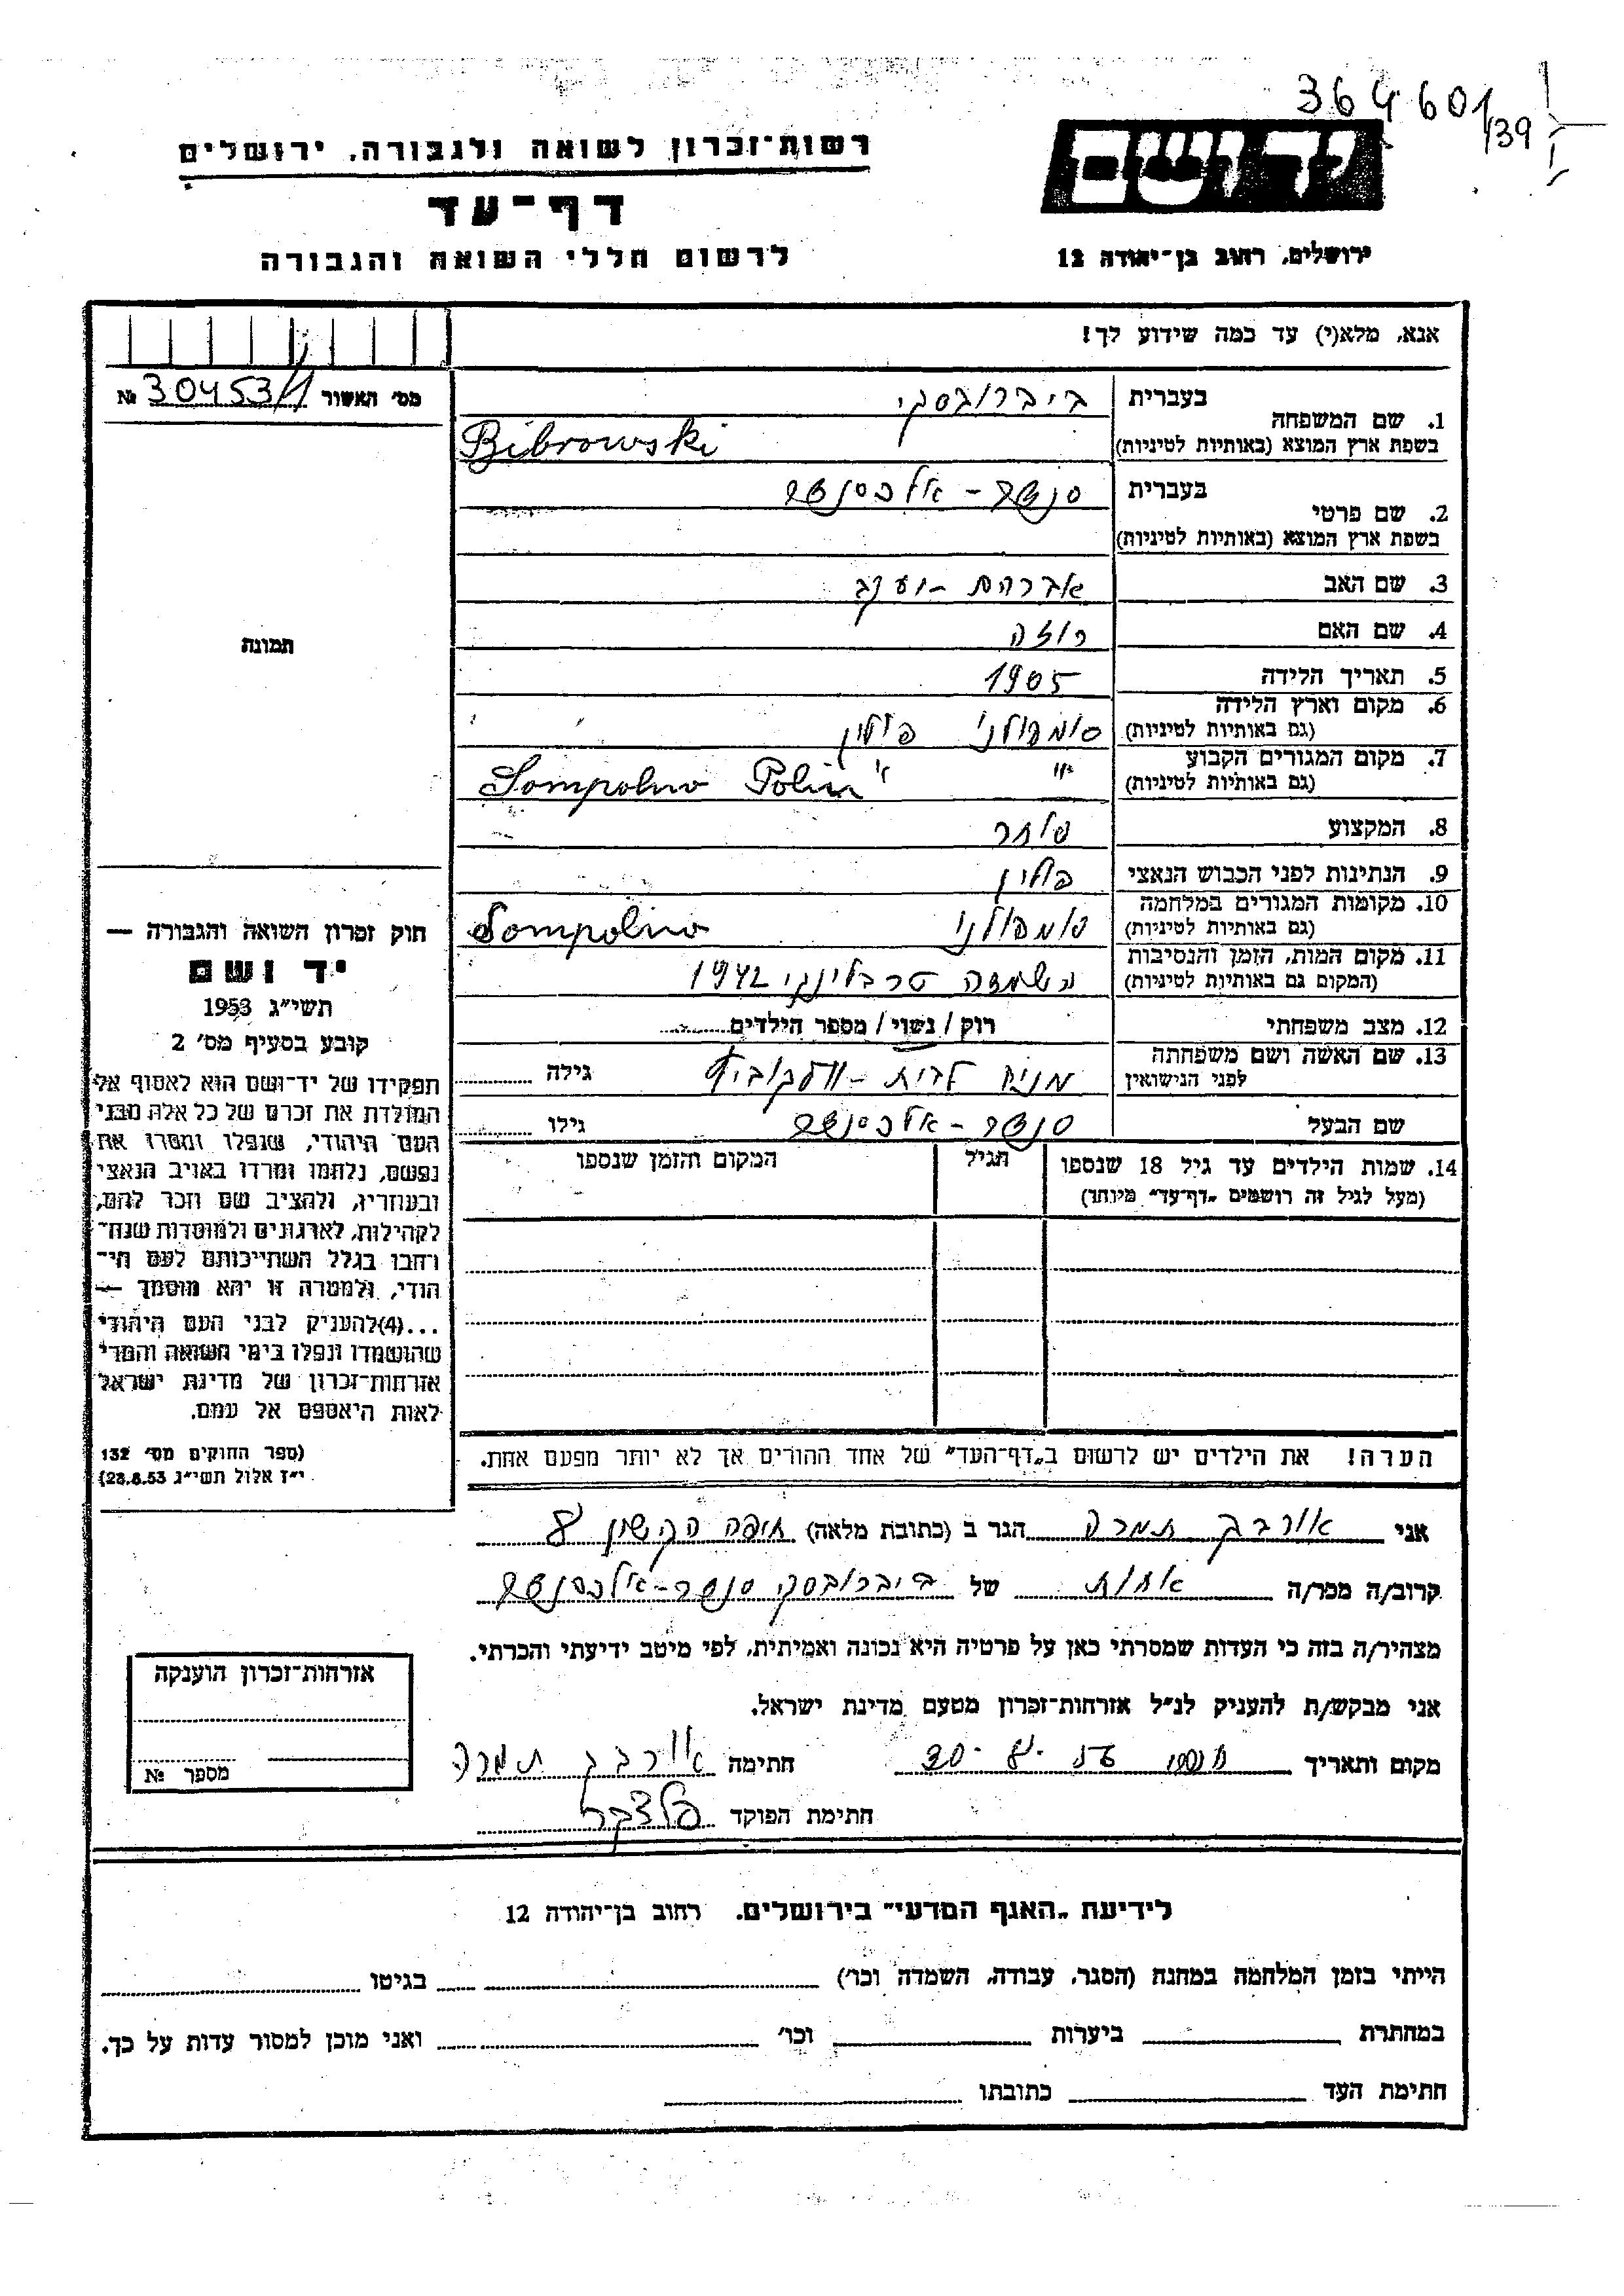 364601/39
רשות־זכרון לשואה ולגבורה, ירושלים
יד ושם
דף־עד
לרשום חללי השואה והגבורה
ירושלים, רחוב בן־יהודה 12
אנא, מלא(י) עד כמה שידוע לך!
מס׳ האשור 30453/1 №
1. שם המשפחה
בעברית ביברובסקי
בשפת ארץ המוצא (באותיות לטיניות) Bibrowski
2. שם פרטי
בעברית סנדר - אלכסנדר
בשפת ארץ המוצא (באותיות לטיניות)
3. שם האב אברהם - יעקב
4. שם האם רוזה
5. תאריך הלידה 1905
6. מקום וארץ הלידה סומפולני פולין
(גם באותיות לטיניות)
7. מקום המגורים הקבוע
(גם באותיות לטיניות) Sompolno Polin
8. המקצוע סוחר
9. הנתינות לפני הכבוש הנאצי פולין
10. מקומות המגורים במלחמה
(גם באותיות לטיניות) סומפולני Sompolno
11. מקום המות, הזמן והנסיבות
(המקום גם באותיות לטיניות) השמדה טרבלינקי 1942
12. מצב משפחתי רוק / נשוי / מספר הילדים
13. שם האשה ושם משפחתה
לפני הנישואין לבית גילה
שם הבעל סנדר - אלכסנדר גילו
14. שמות הילדים עד גיל 18 שנספו הגיל המקום והזמן שנספו
(מעל לגיל זה רושמים „דף־עד״ מיוחד)
תמונה
חוק זכרון השואה והגבורה —
יד ושם
תשי״ג 1953
קובע בסעיף מס׳ 2
תפקידו של יד־ושם הוא לאסוף אל
המולדת את זכרם של כל אלה מבני
העם היהודי, שנפלו ומסרו את
נפשם, נלחמו ומרדו באויב הנאצי
ובעוזריו, ולהציב שם וזכר להם,
לקהילות, לארגונים ולמוסדות שנח־
רחבו בגלל השתייכותם לעם הי־
הודי, ולמטרה זו יהא מוסמך —
...(4)להעניק לבני העם היהודי
שהושמדו ונפלו בימי השואה והמרי
אזרחות־זכרון של מדינת ישראל
לאות היאספם אל עמם.
(ספר החוקים מס׳ 132
י״ז אלול תשי״ג 28.8.53)
הערה! את הילדים יש לרשום ב„דף־העד״ של אחד ההורים אך לא יותר מפעם אחת.
אני אורבך תמרה הגר ב (כתובת מלאה) חיפה הקישון 8
קרוב/ה מכר/ה אחות של ביברובסקי סנדר - אלכסנדר
מצהיר/ה בזה כי העדות שמסרתי כאן על פרטיה היא נכונה ואמיתית, לפי מיטב ידיעתי והכרתי.
אני מבקש/ת להעניק לנ״ל אזרחות־זכרון מטעם מדינת ישראל.
מקום ותאריך חתימה אורבך תמרה
חתימת הפוקד
אזרחות־זכרון הוענקה
מספר №
לידיעת „האגף המדעי״ בירושלים. רחוב בן־יהודה 12
הייתי בזמן המלחמה במחנה (הסגר, עבודה, השמדה וכו׳) בגיטו
במחתרת ביערות וכו׳ ואני מוכן למסור עדות על כך.
חתימת העד כתובתו